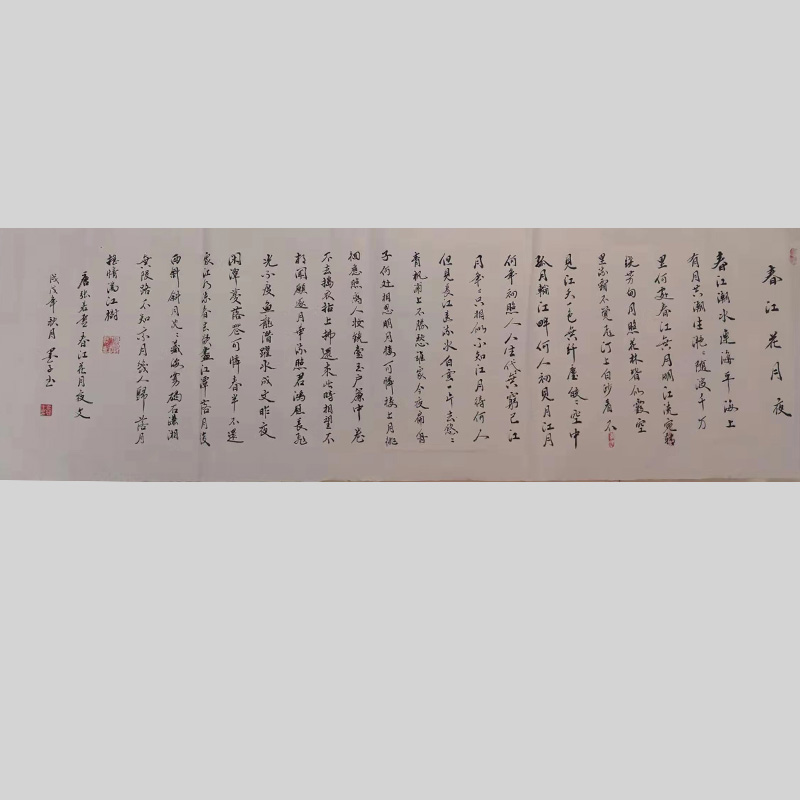 春江花月夜
春江潮水連海平海上
有月共潮生滟〻随波千万
里何處春江無月明江流宛轉
繞芳甸月照花林皆似霰空
里流霜不覺飛汀上白沙看不
見江天一色無纤塵皎〻空中
孤月輪江畔何人初見月江月
何年初照人人生代無窮已江
月年〻只相似不知江月待何人
但見長江送流水白雲一片去悠〻
青楓浦上不勝愁誰家今夜扁舟
子何处相思明月樓可憐樓上月徘
徊應照離人妝鏡臺玉户簾中卷
不去搗衣砧上拂還來此時相望不
相闻願逐月華流照君鴻雁長飛
光不度魚龍潛躍水成文昨夜
闲潭夢落花可憐春半不還
家江水流春去欲盡江潭落月復
西斜斜月沉〻藏海霧碣石瀟湘
無限路不知乘月幾人歸落月
摇情满江樹
唐張若虚春江花月夜文
戊戌年秋月 墨子书